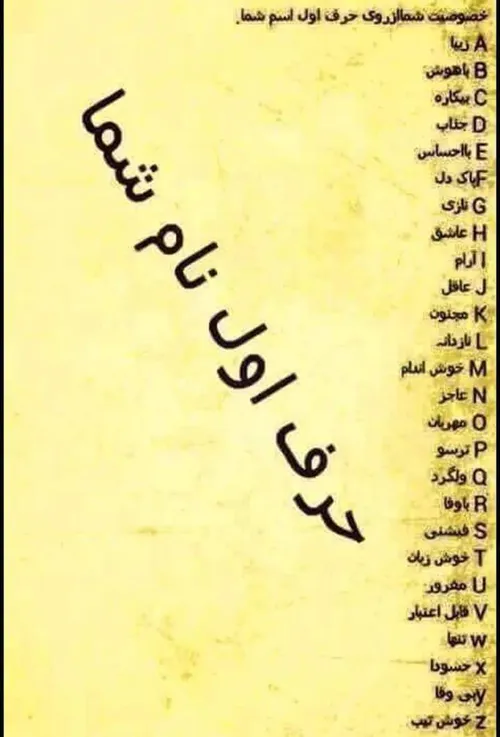 خصوصیت شمااز‌روی حرف اول اسم شما.
A زیبا
B باهوش
C بیکاره
D جذاب
E بااحساس
F پاک دل
G نازی
H عاشق
I آرام
J عاقل
K مجنون
L نازدانه
M خوش اندام
N عاجز
O مهربان
P ترسو
Q ولگرد
R باوفا
S فیشنی
T خوش زبان
U مغرور
V قابل اعتبار
w تنها
x حسودا
y بی وفا
z خوش تیپ
حرف اول نام شما